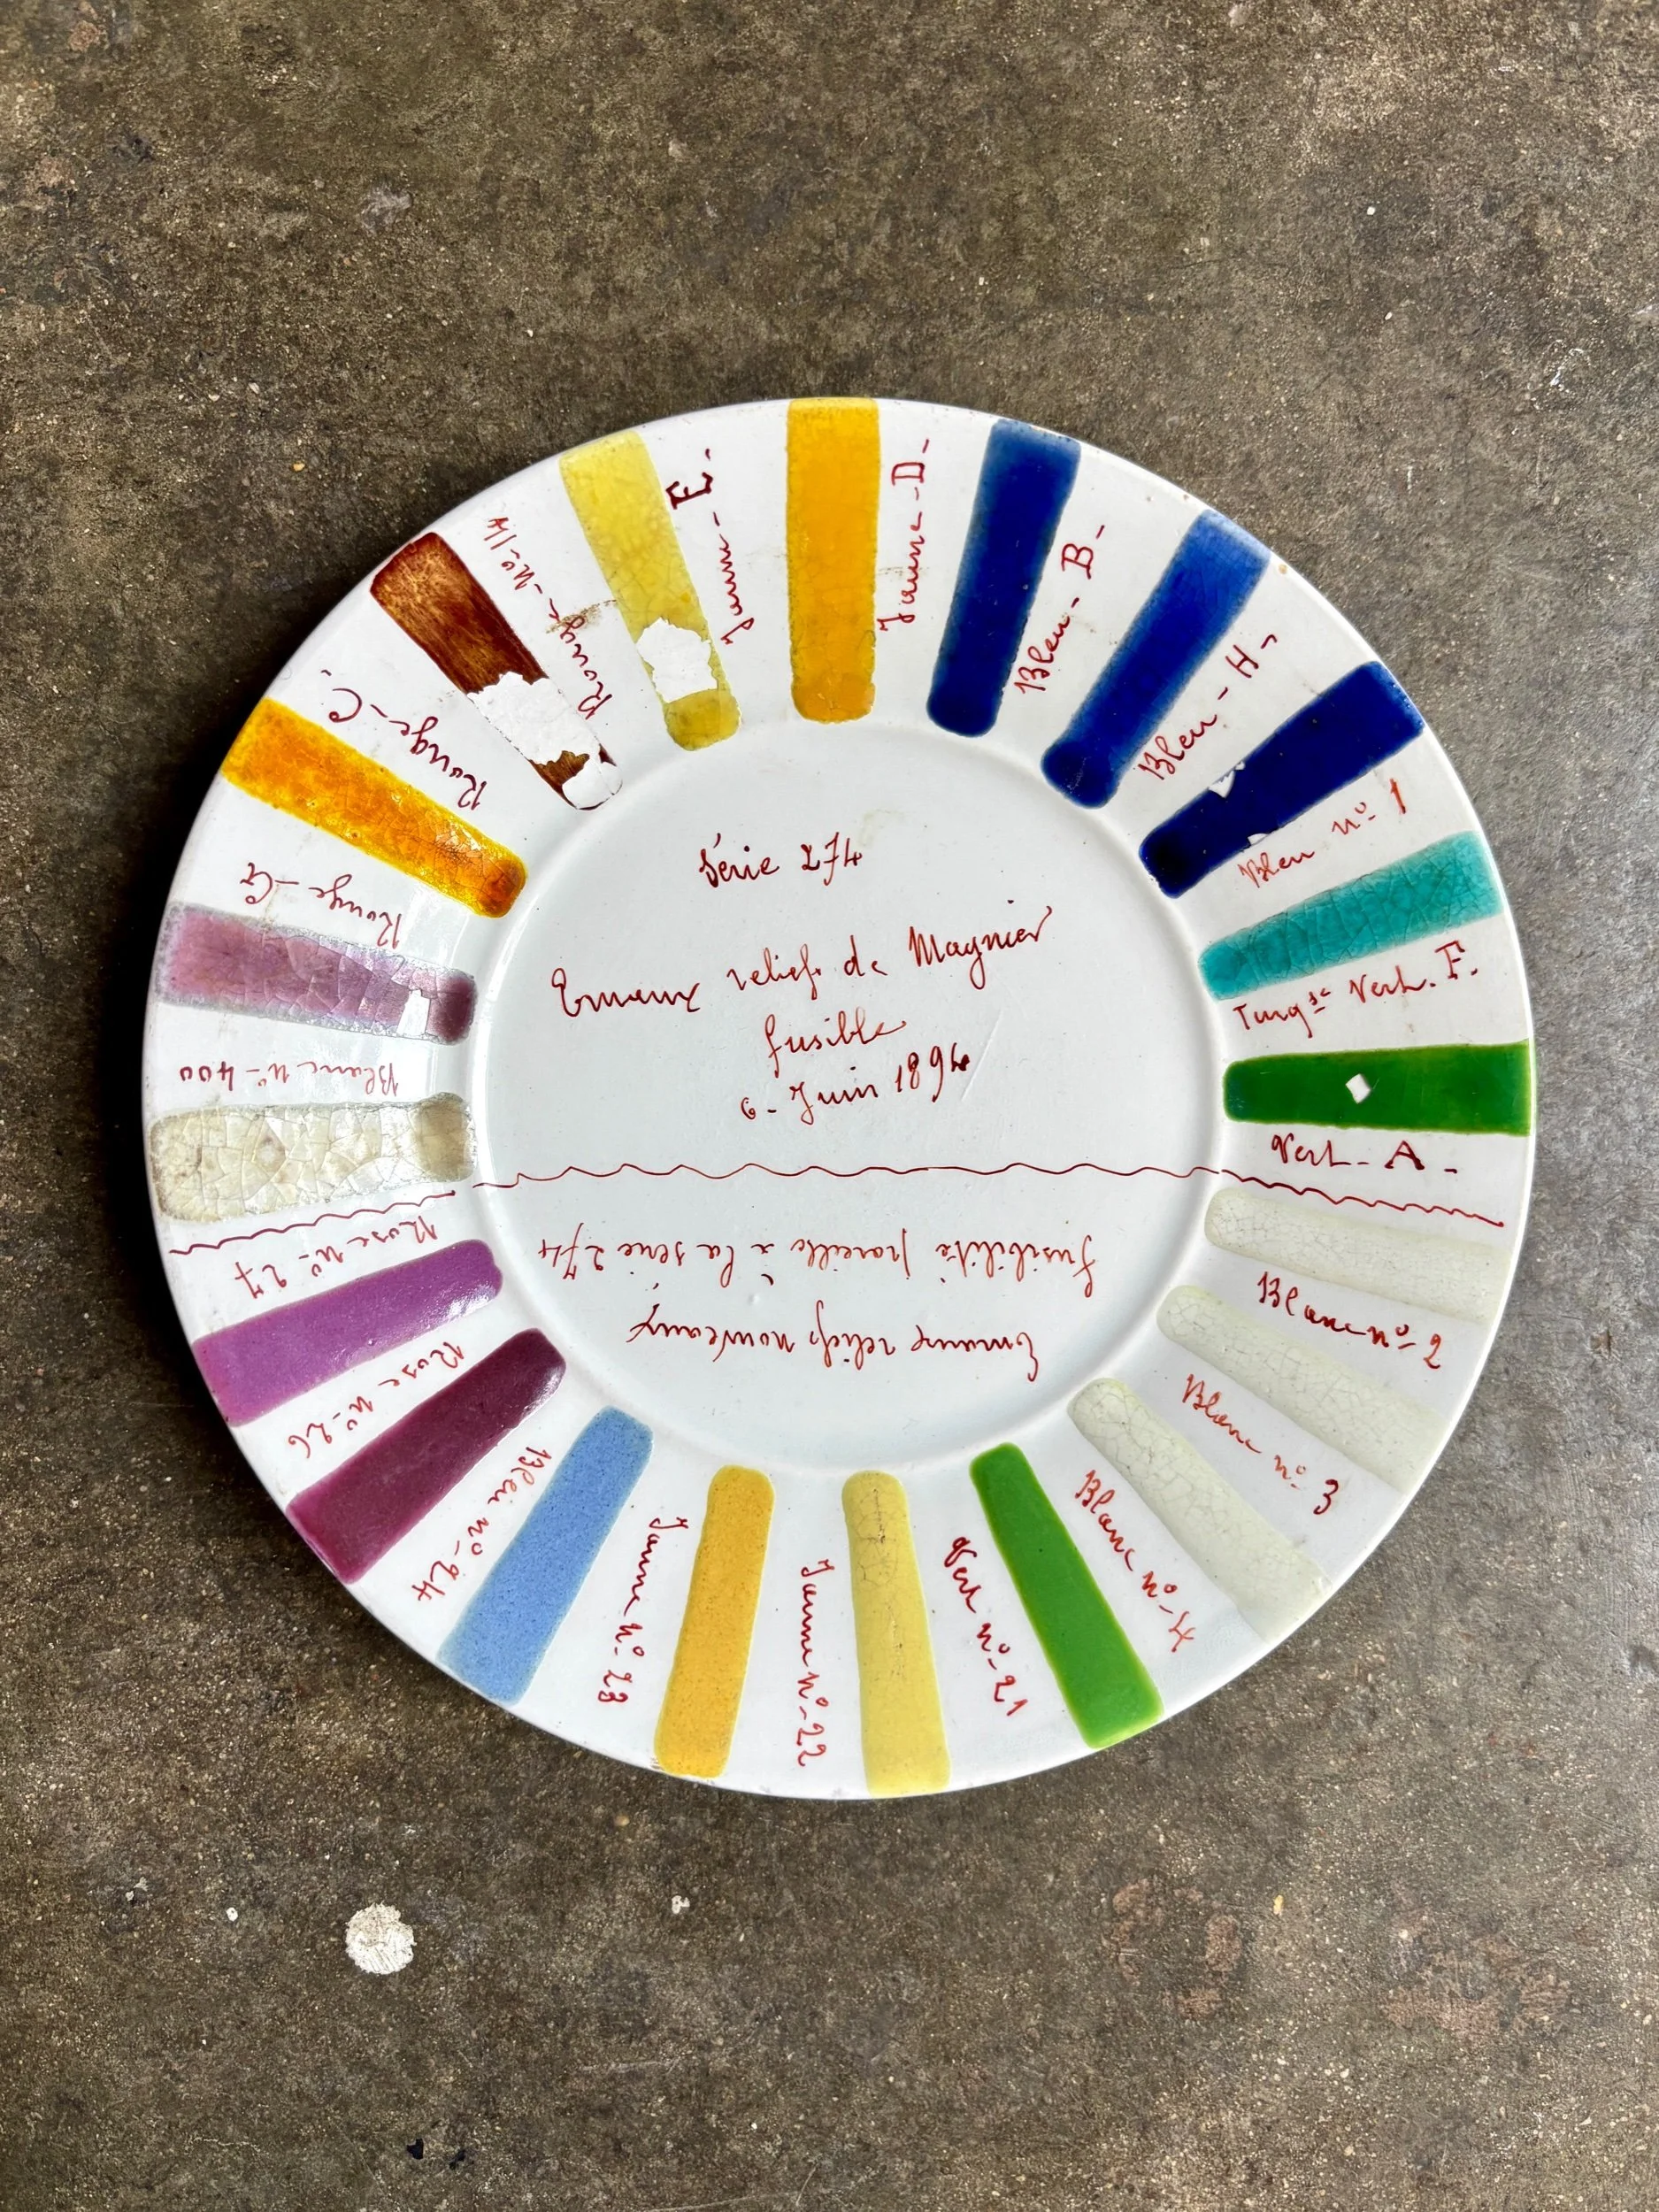 Série 274
Emaux reliefs de Magnier
fusible
6 - Juin 1894
Emaux reliefs nouveaux
fusibilité pareille à la série 274
Blanc n° - 400
Rouge - G
Rouge - C.
Rouge - N° - 14
Jaune - E -
Jaune - D -
Bleu - B -
Bleu - H -
Bleu n° 1
Turq se Vert. F.
Vert - A -
Blanc n° - 2
Blanc n° 3
Blanc n° - 4
Vert n° - 21
Jaune N° - 22
Jaune N° - 23
Bleu n° - 24
Rose N° - 26
Rose N° - 27